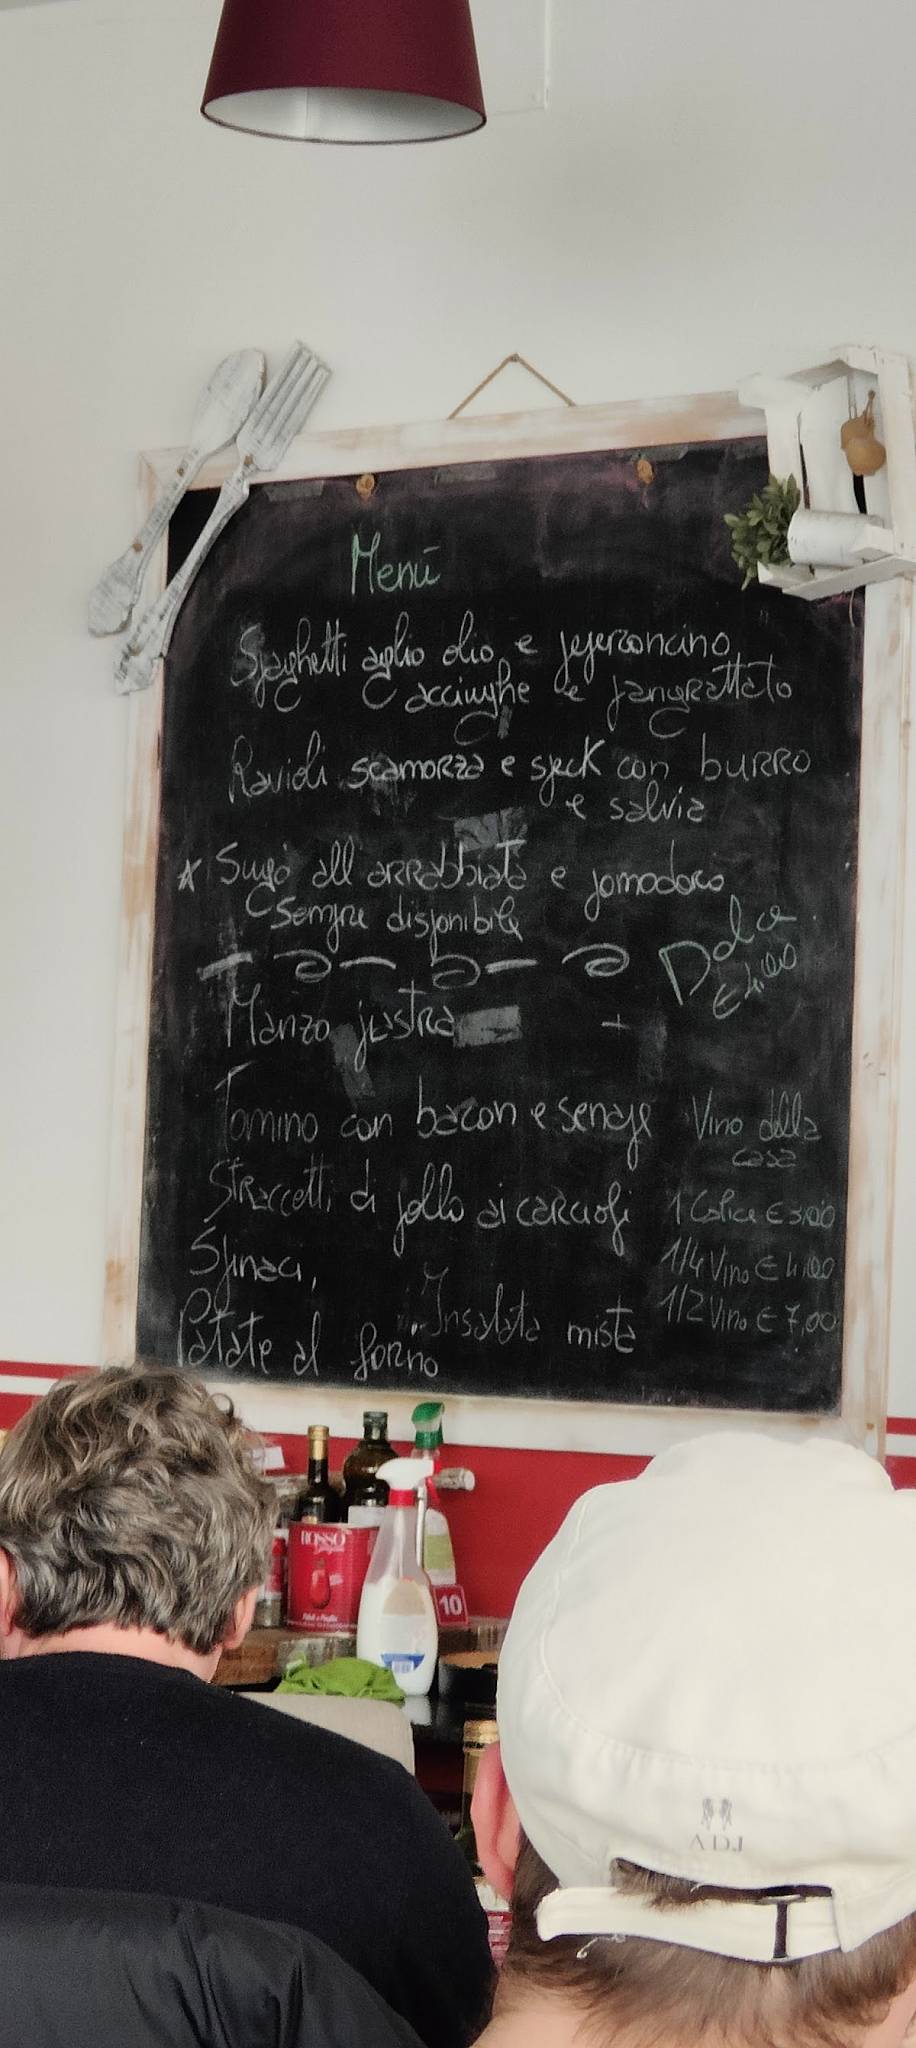 Menù
Spaghetti aglio olio e peperoncino
acciughe e pangrattato
Ravioli scamorza e speck con burro
e salvia
* Sugo all arrabbiata e pomodoro
sempre disponibile
Dolce
€ 4,00
Manzo piastra
Tomino con bacon e senape
Straccetti di pollo ai carciofi
Spinaci,
Insalata mista
Patate al forno
Vino della
casa
1 Calice € 3,00
1/4 Vino € 4,00
1/2 Vino € 7,00
ROSSO
10
ADJ